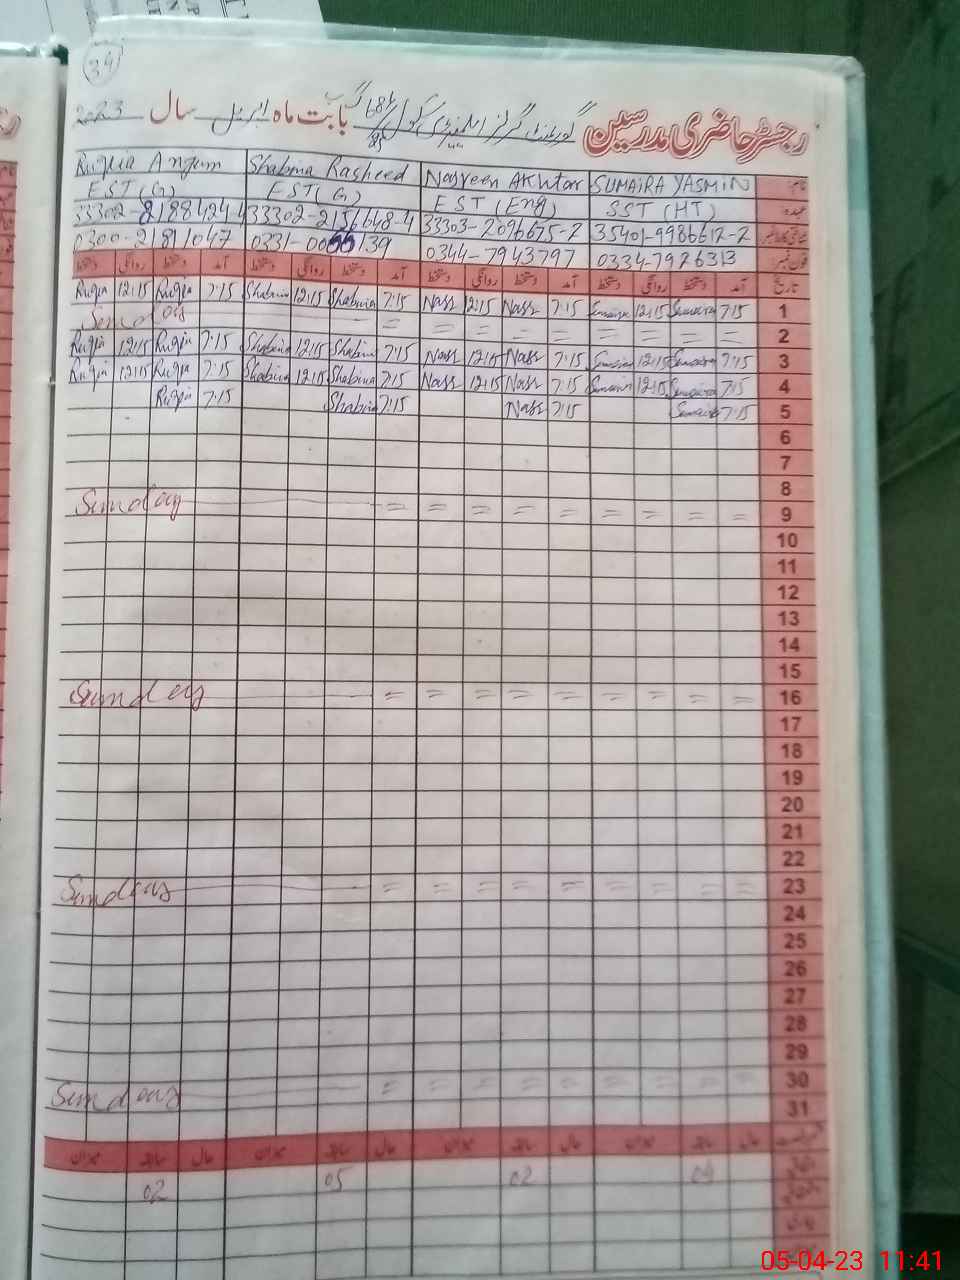 39
رجسٹر حاضری مدرسین گورنمنٹ گرلز ایلیمنٹری سکول بابت ماہ اپریل سال 2023
Ruqia Anjum Shabina Rasheed Nasreen AKhtar SUMAIRA YASMIN نام
EST (G) EST (G) EST (Eng) SST (HT) عہدہ
33302-2188424-4 33302-2156648-4 33303-2096675-2 35401-9986612-2
0300-2181047 0331-0066139 0344-7943797 0334-7926313 فون نمبر
دستخط روانگی دستخط آمد دستخط روانگی دستخط آمد دستخط روانگی دستخط آمد دستخط روانگی دستخط آمد تاریخ
Ruqia 12:15 Ruqia 7:15 Shabina 12:15 Shabina 7:15 Nass 12:15 Nass 7:15 Sumaira 12:15 Sumaira 7:15 1
Sunday = = = = = = = = = 2
Ruqia 12:15 Ruqia 7:15 Shabina 12:15 Shabina 7:15 Nass 12:15 Nass 7:15 Sumaira 12:15 Sumaira 7:15 3
Ruqia 12:15 Ruqia 7:15 Shabina 12:15 Shabina 7:15 Nass 12:15 Nass 7:15 Sumaira 12:15 Sumaira 7:15 4
Ruqia 7:15 Shabina 7:15 Nass 7:15 Sumaira 7:15 5
6
7
8
Sunday = = = = = = = = = 9
10
11
12
13
14
15
Sunday = = = = = = = = = 16
17
18
19
20
21
22
Sunday = = = = = = = = = 23
24
25
26
27
28
29
Sunday = = = = = = = = = 30
31
میزان سابقہ حال میزان سابقہ حال میزان سابقہ حال میزان سابقہ حال
02 05 02 04
05-04-23 11:41